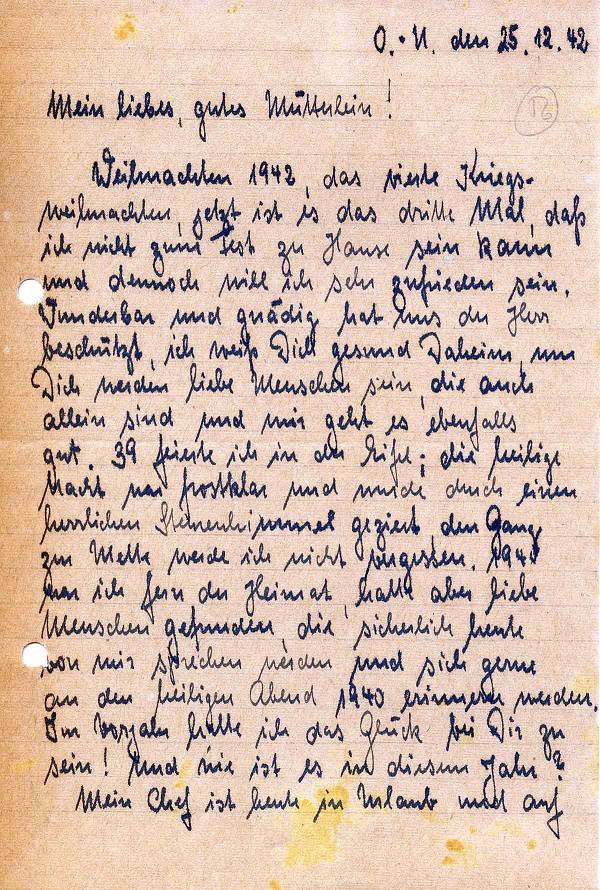 O.-U. den 25.12.42
Mein liebes, gutes Mütterlein!
16
Weihnachten 1942, das vierte Kriegs-
weihnachten, jetzt ist es das dritte Mal, daß
ich nicht zum Fest zu Hause sein kann
und dennoch will ich sehr zufrieden sein.
Wunderbar und gnädig hat uns der Herr
beschützt, ich weiß Dich gesund Daheim, um
Dich werden liebe Menschen sein, die auch
allein sind und mir geht es ebenfalls
gut. 39 feierte ich in der Eifel; die heilige
Nacht war frostklar und wurde durch einen
herrlichen Sternenhimmel geziert den Gang
zur Mette werde ich nicht vergessen. 1940
war ich fern der Heimat, hatte aber liebe
Menschen gefunden, die sicherlich heute
von mir sprechen werden und sich gerne
an den heiligen Abend 1940 erinnern werden.
Im Vorjahr hatte ich das Glück bei Dir zu
sein! Und wie ist es in diesem Jahr?
Mein Chef ist heute in Urlaub und auf